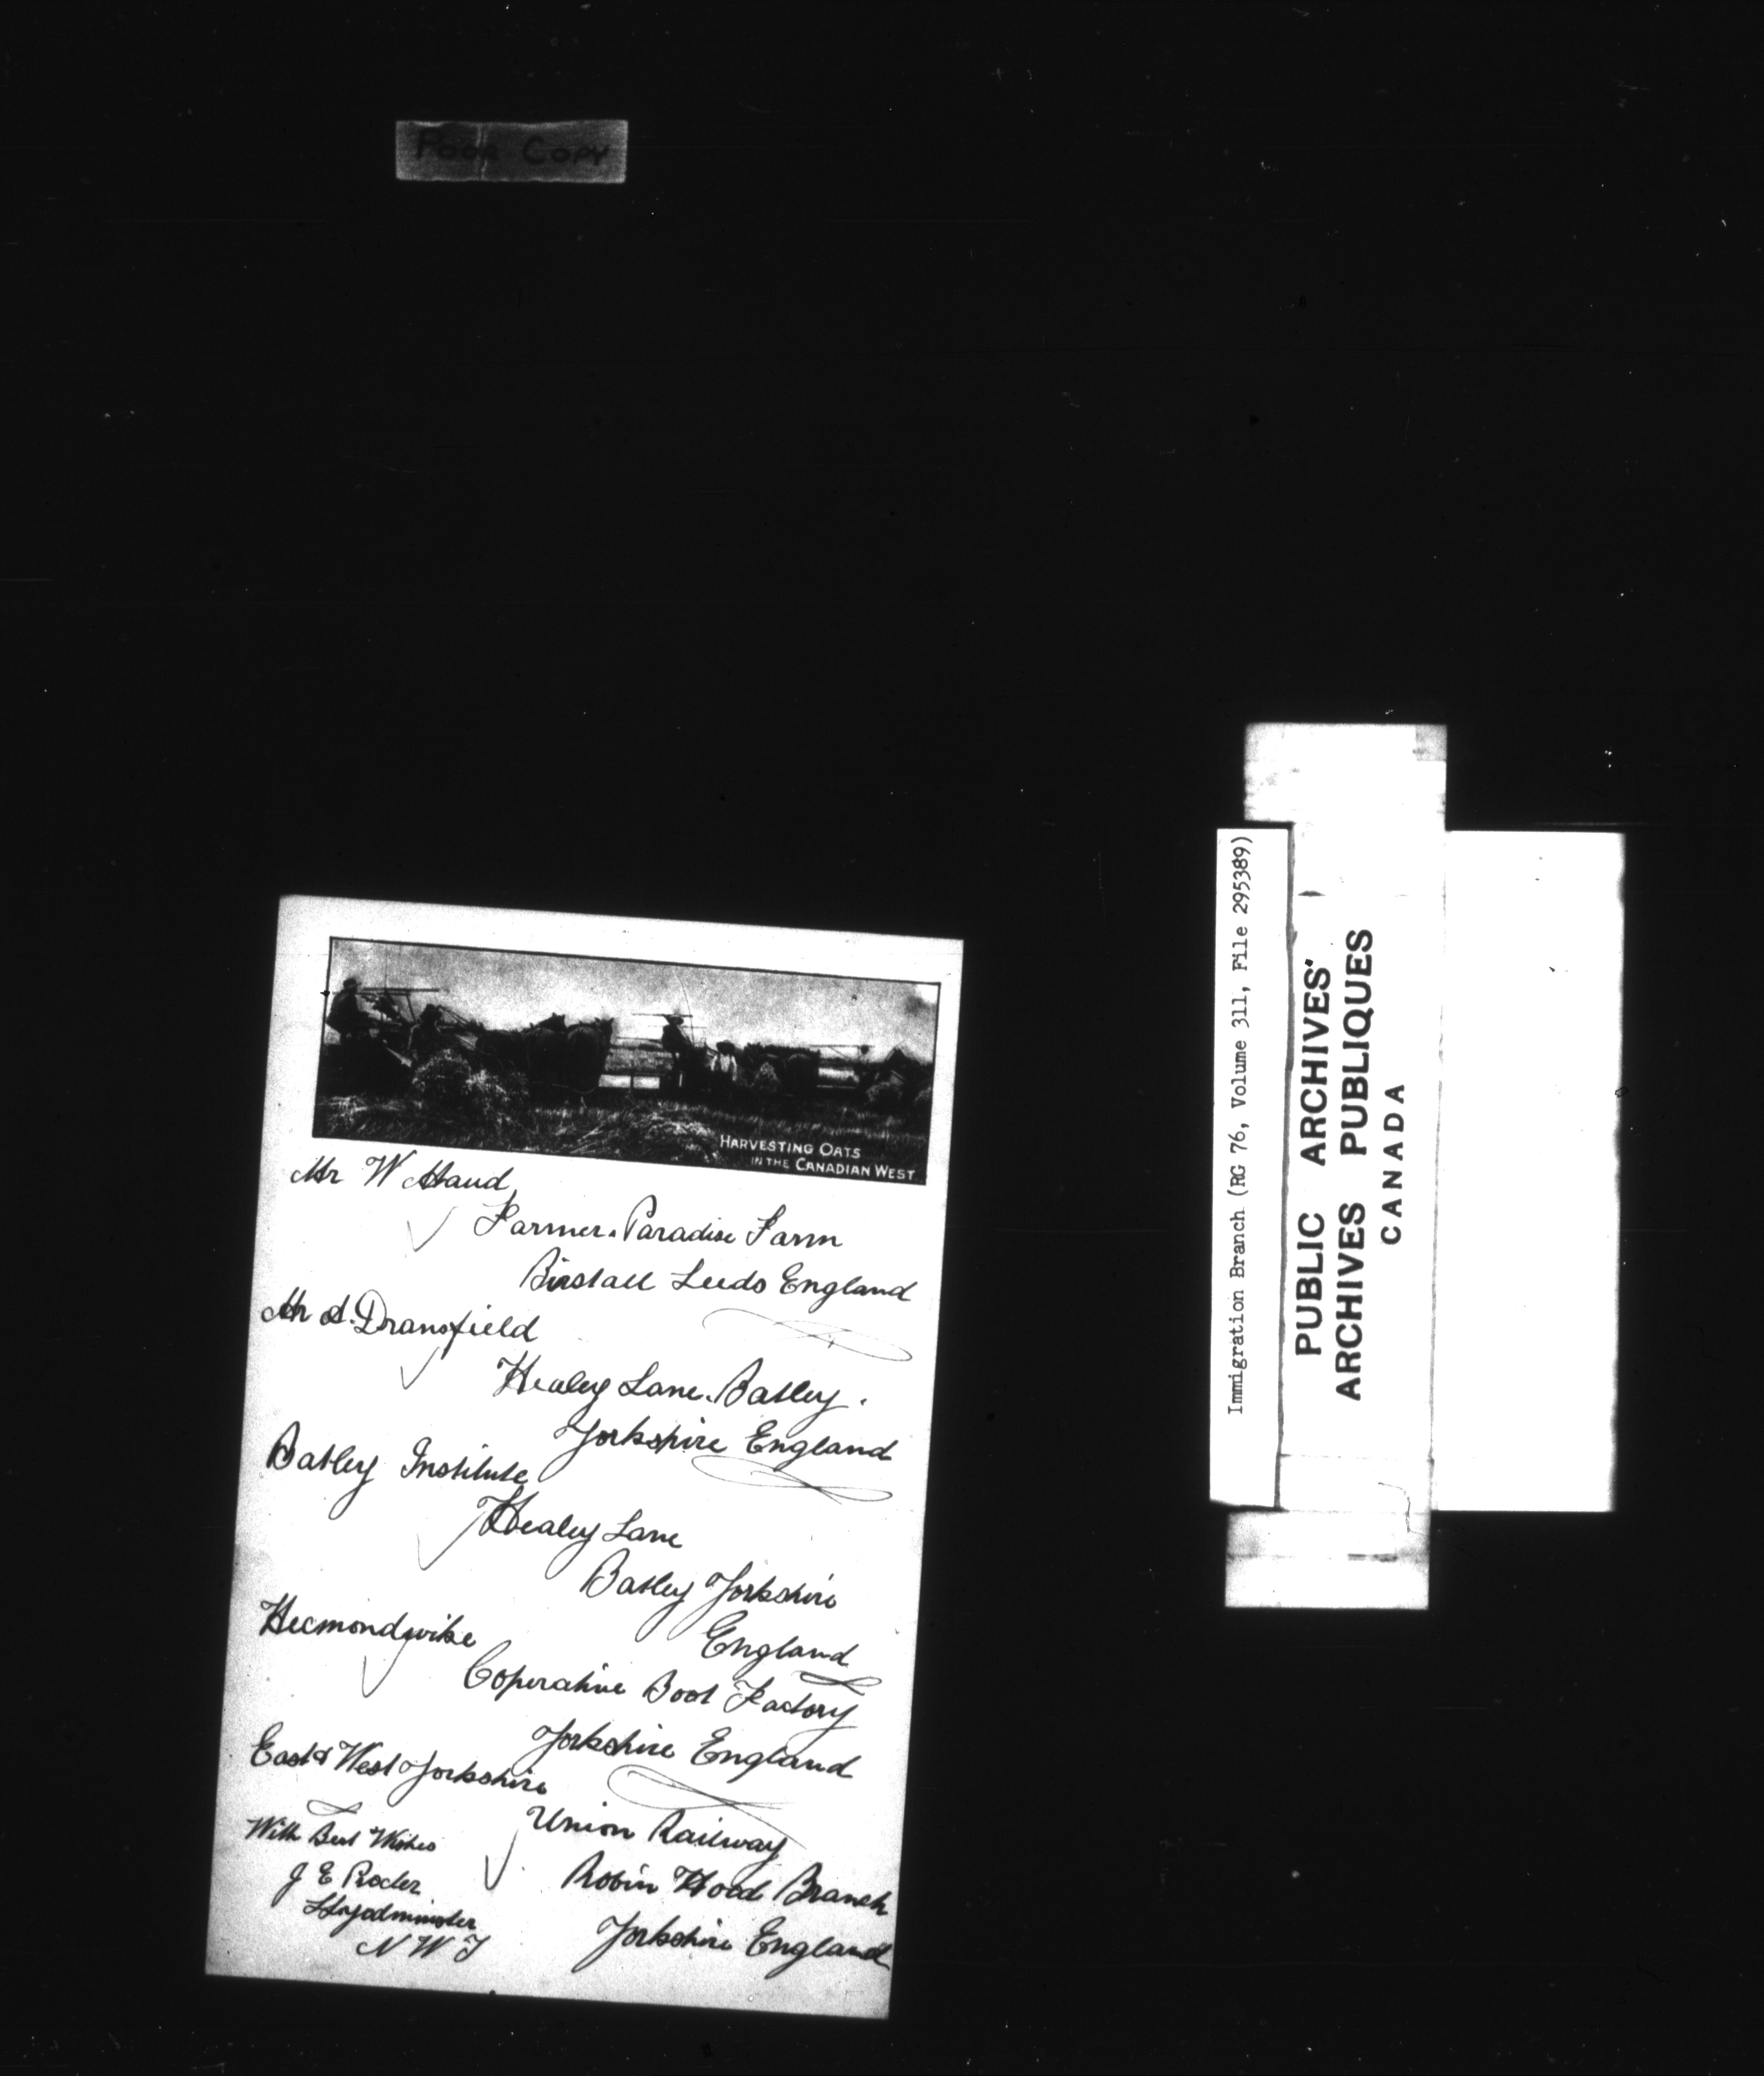 Poor Copy
HARVESTING OATS
IN THE CANADIAN WEST
Mr W Haud
Farmer. Paradise Farm
Birstall Leeds England
Mr S. Dransfield
Healey Lane. Batley.
Yorkshire England
Batley Institute
Healey Lane
Batley Yorkshire
England
Hecmondwike
Coperative Boot Factory
Yorkshire England
East & West Yorkshire
Union Railway
Robin Hood Branch
Yorkshire England
With Best Wishes
J E Procter
Lloydminster
N W T
Immigration Branch (RG 76, Volume 311, File 295389)
PUBLIC ARCHIVES
ARCHIVES PUBLIQUES
CANADA